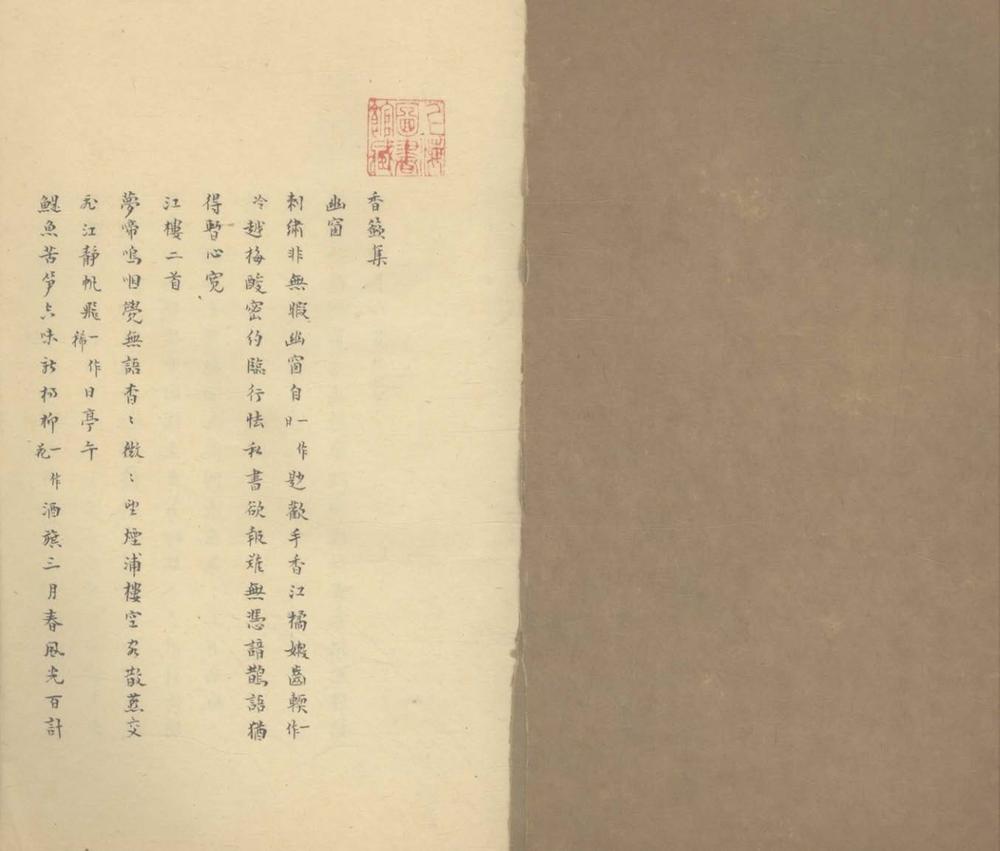 上海
圖書
館藏
香籢集
幽窗
刺繡非無暇幽窗自一作日尠歡手香江橘嫩齒輭一作
冷越梅酸密約臨行怯私書欲報難無憑諳鵲語猶
得暫心寬
江樓二首
夢啼嗚咽覺無語杳〻微〻望煙浦樓空客散燕交
飛江靜帆飛一作稀日亭午
鯷魚苦笋味新楊柳一作花酒旗三月春風光百計